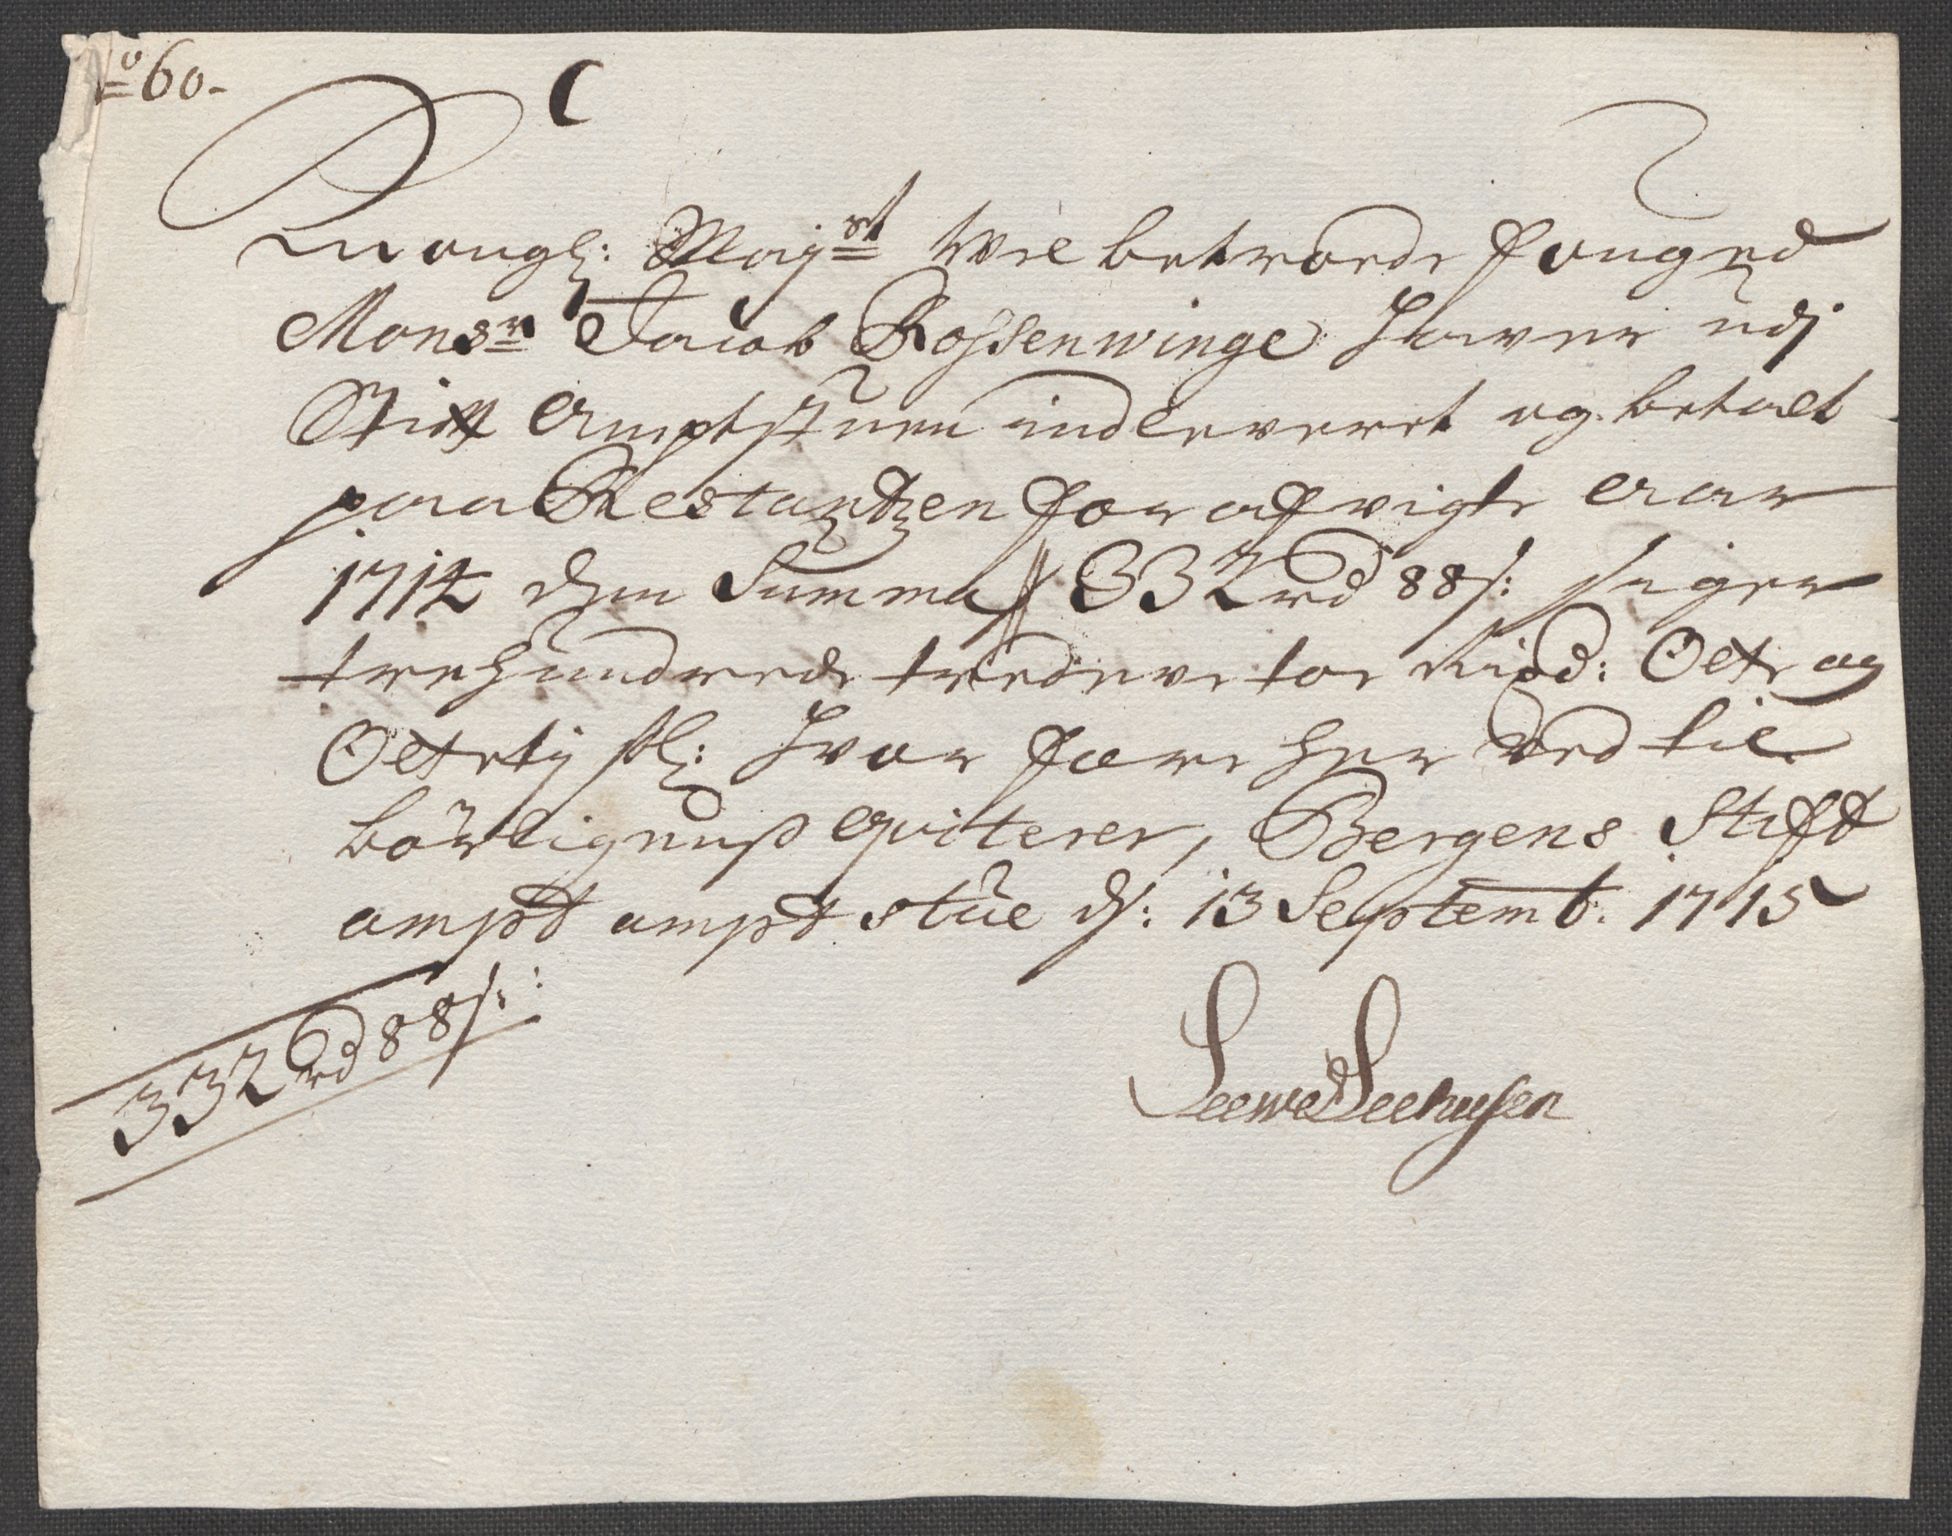 No 60-
C
Kongl: Maÿst Wel betroede Fouged
Monsr Jacob Rossenwinge Haver udj
Stift Amptstuen indleveret og betalt
paa Restantzen for afvigte Aar
1714 dend Summa 332 rd 88 s: siger
trehundrede tredeve toe Rixd: Otte og
Ottetÿ sk: Hvor fore her ved til
börligenß qviterer, Bergens Stift
ampt ampt stüe ds: 13 Septemb: 1715
332 rd 88 s:
Leewe Seehusen